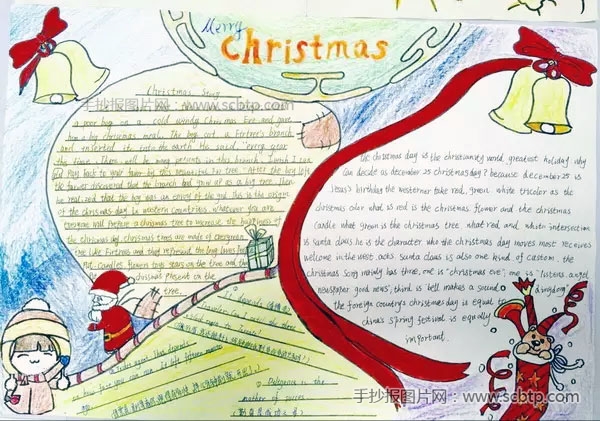 Merry
Christmas
Christmas Story
手抄报图片网:www.scbtp.com
a poor boy in a cold windy Christmas Eve and gave
him a big christmas meal. The boy cut a Firtree's branch
and inserted it into the earth. He said, "every year
the time. There will be many presents in this branch. I wish I can
pay back to your favor by this beautiful Fir tree." After the boy left
the farmer discovered that the branch had grown up as a big tree. Then
he realized that the boy was an envoy of the god. This is the origin
of the christmas day. In western countries, whatever you are
everyone will prepare a christmas tree to increase the happiness of
the christmas day. christmas trees are made of evergreen
tree like Firtrees and that represent the long
candles, flowers toys stars on the tree and the
christmas Present on the
tree.
the christmas day is the christianity world greatest holiday why
can decide as december 25 christmas day? because december 25 is
Jesus's birthday the westerner take red, green white tricolor as the
christmas color what is red is the christmas flower and the christmas
candle what green is the christmas tree what red and white intersection
is santa claus he is the character who the christmas day moves most receives
welcome in the west acks santa claus is also one kind of custom. the
christmas song mainly has three, one is "christmas eve"; one is "listens angel
newspaper good news"; third is bell makes a sound "dingdong"
the foreign country's christmas day is equal to
china's spring festival is equally
important.
It depends
Deligence is the
mother of succes
手抄报图片网:www.scbtp.com